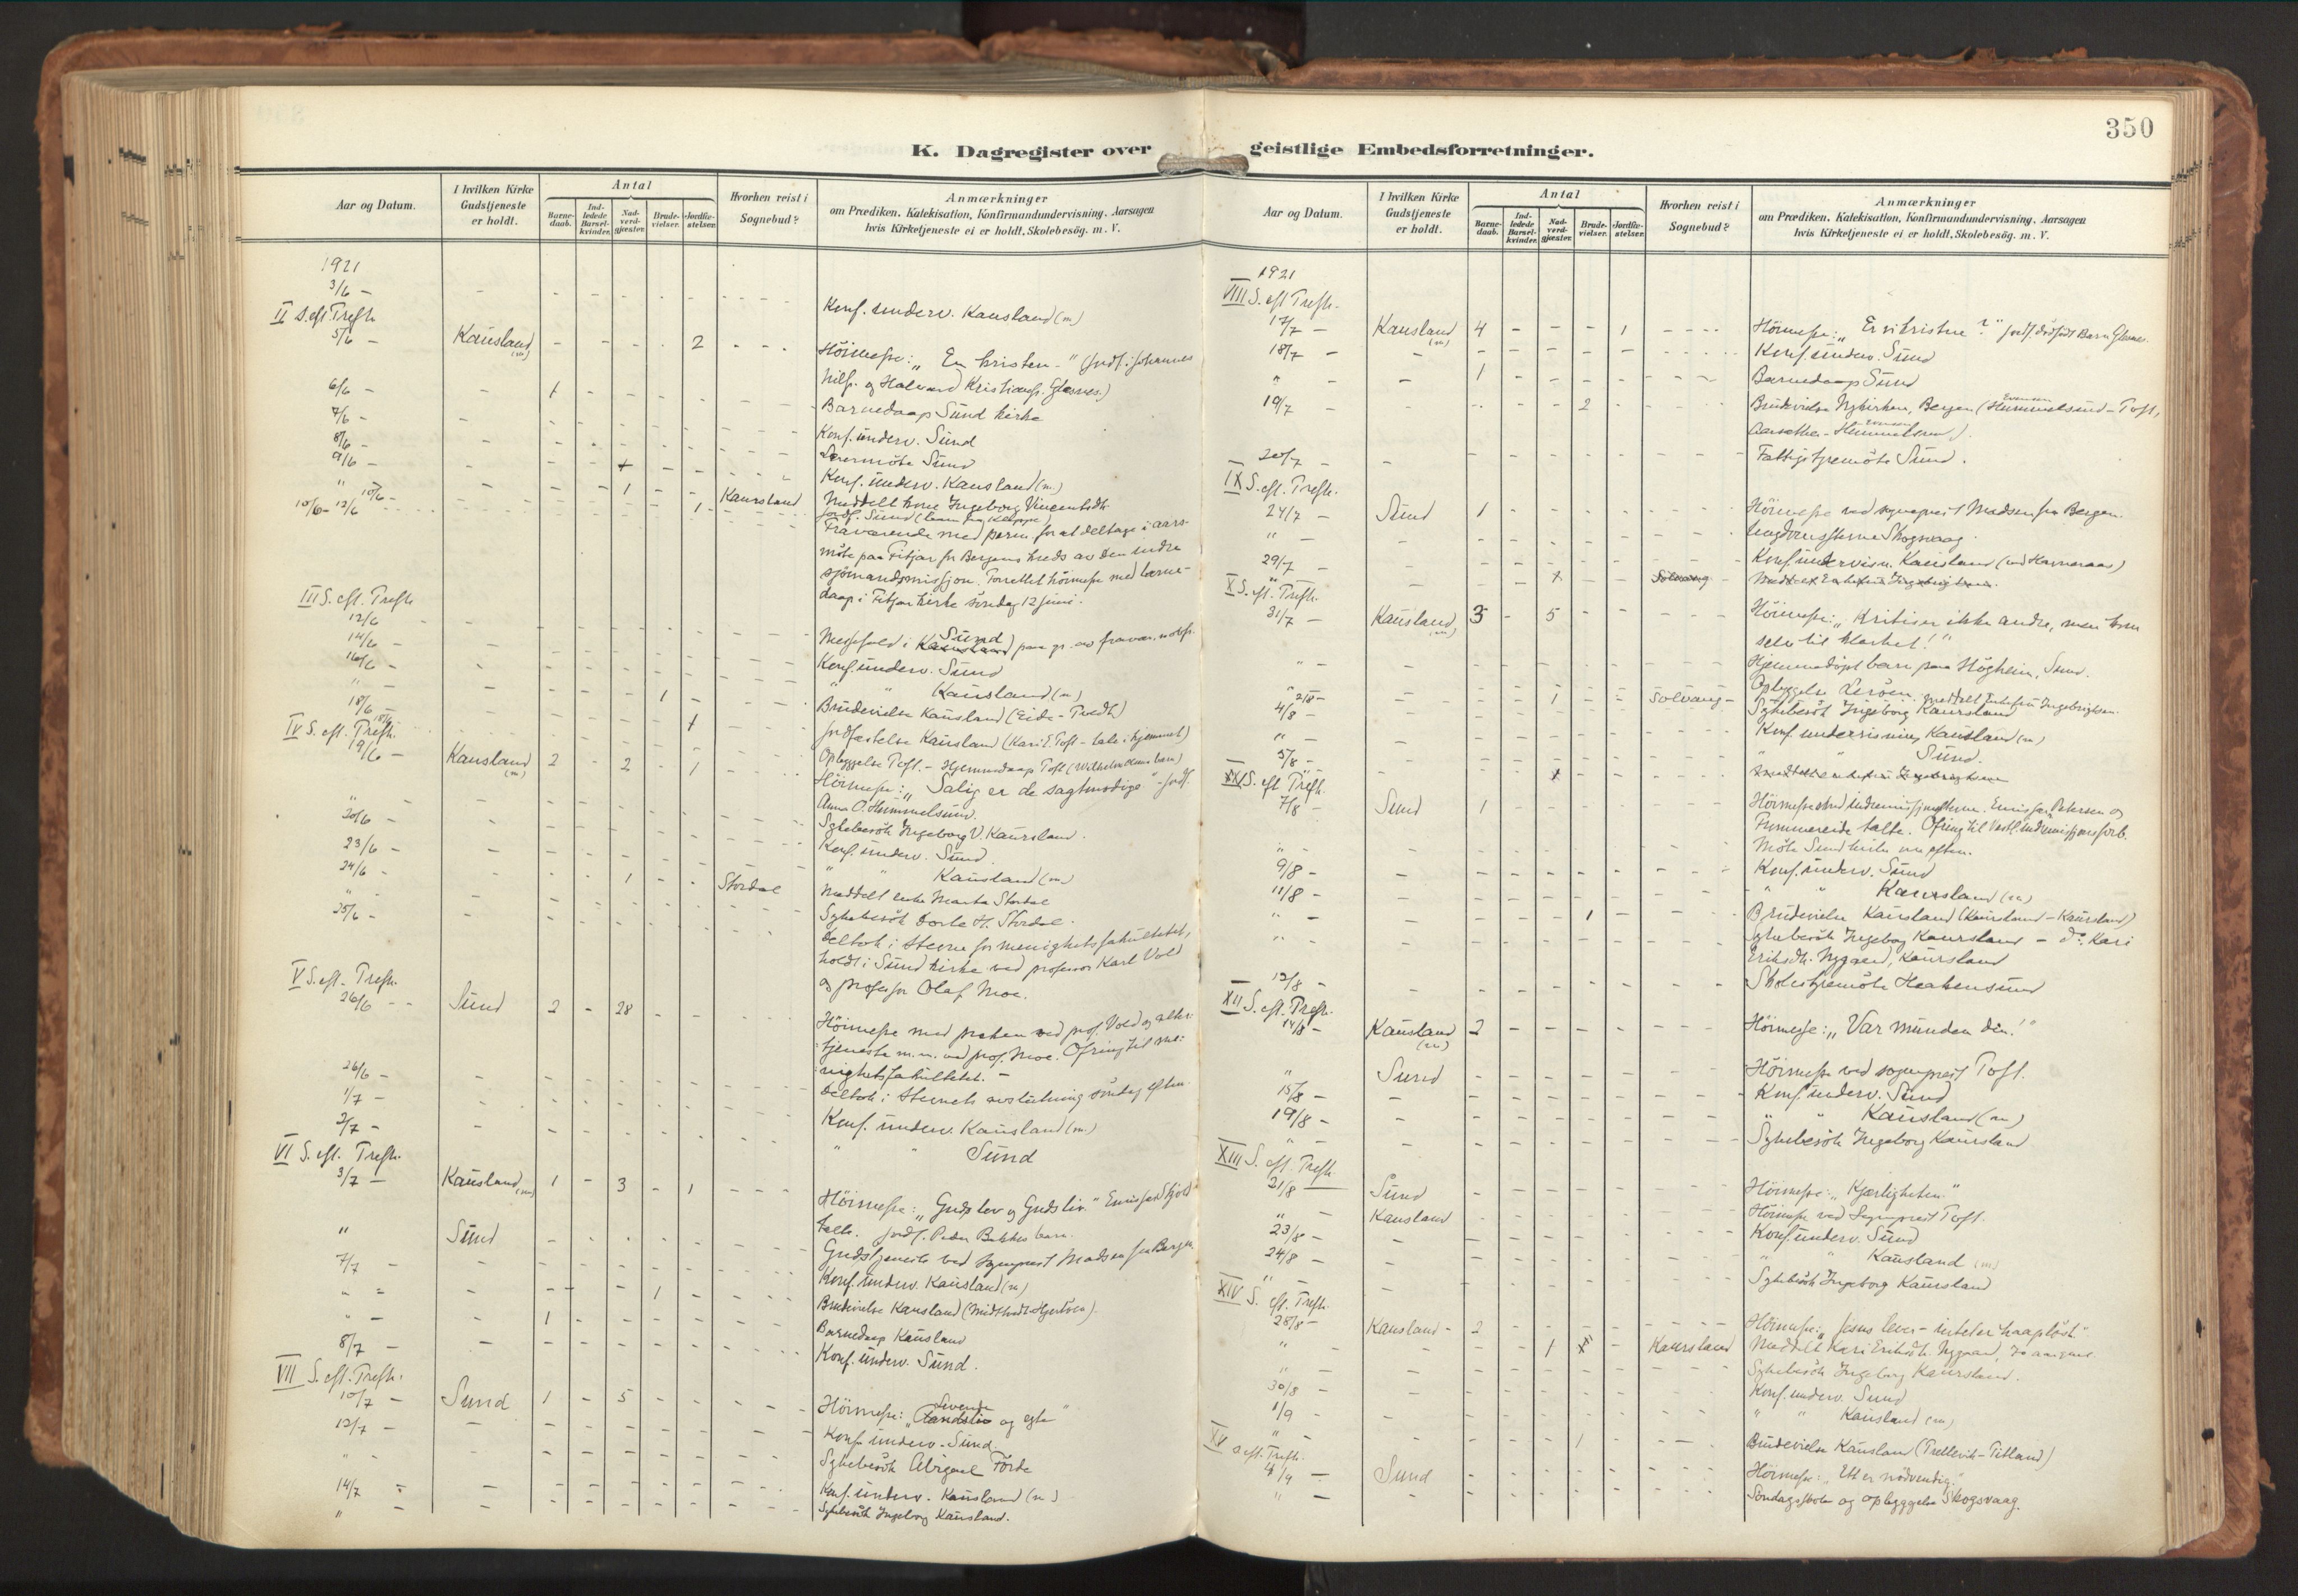 350
K. Dagregister over geistlige Embedsforretninger.
Aar og Datum.
I hvilken Kirke Gudstjeneste er holdt.
Antal
Barne-daab.
Ind-ledede Barsel-kvinder.
Nad-verd-gjæster.
Brude-vielser.
Jordfæ-stelser.
Hvorhen reist i Sognebud?
Anmærkninger
om Prædiken, Katekisation, Konfirmandundervisning, Aarsagen
hvis Kirketjeneste ei er holdt, Skolebesøg. m. V.
1921
3/6 – Konf. underv. Kausland (m)
II S. eft. Trefh.
5/6 – Kausland (m) 2 Höimesse: „En kristen –" (Jordf. : Johannes
Nilss. og Halvard Kristianss. Glesnes.)
6/6 – 1 Barnedaap Sund kirke
7/6 – Konf. underv. Sund
8/6 – Lærermöte Sund
9/6 – Konf. underv. Kausland (m.)
" 1 Kaursland Meddelt kone Ingeborg Vincentsdtr.
10/6 – 1 Jordf. Sund
10/6 – 12/6 Fraværende med perm. for at deltage i aars-
möte paa Fitjar for Bergens kreds av Den indre
sjömandsmissjon. Forrettet höimesse med barne-
daap i Fitjar kirke söndag 12 juni.
III S. eft. Trefh.
12/6 Messefald i Sund paa gr. av fravær.
14/6 – Konf. underv. Sund
16/6 – " " Kausland (m)
" – 1 Brudevielse Kausland (Eide – Tvedt)
18/6 – 1 Jordfæstelse Kausland (Kari E. Toft – tale i hjemmet)
18/6 Opbyggelse Toft. – Hjemmedaap Toft
IV S. eft. Trefh.
19/6 – Kausland (m) 2 - 2 - 1 Höimesse: „Salig er de sagtmodige" – Jordf.
Anna O. Hummelsund.
" – Sykebesök Ingeborg V. Kaursland.
20/6 – Konf. underv. Sund
23/6 – " " Kausland (m)
24/6 – 1 Stordal Meddelt enke Marta Stordal
" – Sykebesök Dorte H. Stordal.
25/6 – Deltok i stevne for menighetsfakultetet,
holdt i Sund kirke ved professor Karl Vold
og professor Olaf Moe.
V S. eft. Trefh.
26/6 – Sund 2 - 28 Höimesse med præken ved prof. Vold og alter-
tjeneste m. m. ved prof. Moe. Ofring til me-
nighetsfakultetet. –
26/6 – Deltok i stevnets avslutning söndag eften.
1/7 – Konf. underv. Kausland (m.)
2/7 – " " Sund
VI S. eft. Trefh.
3/7 – Kausland (m) 1 - 3 - 1 Höimesse: „Guds lov og Guds liv." Emissær Skjold
talte. Jordf. Peder Bakkes barn.
" Sund Gudstjeneste ved sogneprest Madsen fra Bergen.
7/7 – Konf. underv. Kausland (m)
" – 1 Brudevielse Kausland
" – 1 Barnedaap Kausland
8/7 – Konf. underv. Sund.
VII S. eft. Trefh.
10/7 – Sund 1 - 5 Höimesse: „Levende og egte"
12/7 – Konf. underv. Sund.
" Sykebesök Abigael Förde
14/7 – Konf. underv. Kausland (m)
" – Sykebesök Ingeborg Kaursland.
Aar og Datum.
I hvilken Kirke Gudstjeneste er holdt.
Antal
Barne-daab.
Ind-ledede Barsel-kvinder.
Nad-verd-gjæster.
Brude-vielser.
Jordfæ-stelser.
Hvorhen reist i Sognebud?
Anmærkninger
om Prædiken, Katekisation, Konfirmandundervisning, Aarsagen
hvis Kirketjeneste ei er holdt, Skolebesøg. m. V.
1921
VIII S. eft. Trefh.
17/7 – Kausland (m) 4 - - - 1 Höimesse: „Er vi kristne?" Jordf. dödfödt Barn Glesnes.
18/7 – Konf. underv. Sund
" – 1 Barnedaap Sund
19/7 – 2 Brudevielse Nykirken, Bergen (Hummelsund – Toft,
Aarsether – Hummelsund).
20/7 – Fattigstyremöte Sund.
IX S. eft. Trefh.
24/7 – Sund 1 Höimesse ved sogneprest Madsen fra Bergen.
" – Ungdomsstevne Skogsvaag.
29/7 – Konf. undervisn. Kausland
X S. eft. Trefh.
31/7 – Kausland (m) 3 - 5 Höimesse: „Kritiser ikke andre, men kom
selv til klarhet!"
" – Hjemmedöpt barn paa Högheim, Sund.
" – Opbyggelse Leröen.
2/8 – 1 Solvang – Meddelt Ingebrigtsen.
4/8 – Sykebesök Ingeborg Kaursland
" – Konf. undervisning Kausland (m)
5/8 – " " Sund.
XI S. eft. Trefh.
7/8 – Sund 1 Höimesse Emissær Petersen og
Tummereide talte. Ofring til Vestl. indremissjonsforb.
" – Möte Sund kirke om eften.
9/8 – Konf. underv. Sund
11/8 – " " Kaursland (m)
" – 1 Brudevielse Kausland (Kaursland – Kaursland)
" – Sykebesök Ingeborg Kaursland – do. Kari
Eriksdtr. Nygaard, Kaursland
12/8 – Skolestyremöte Heakensund
XII S. eft. Trefh.
14/8 – Kausland (m) 2 Höimesse: „Var munden din!"
" Sund Höimesse ved sogneprest Toft.
15/8 – Konf. underv. Sund
19/8 – " " Kausland (m)
" – Sykebesök Ingeborg Kaursland
XIII S. eft. Trefh.
21/8 – Sund Höimesse: „Kjærligheten."
" – Kausland Höimesse ved Sogneprest Toft.
23/8 – Konf. underv. Sund
24/8 – " " Kausland (m)
" – Sykebesök Ingeborg Kaursland
XIV S. eft. Trefh.
28/8 – Kausland – 2 Höimesse: „Jesus lever – intet er haaplöst"
" – 1 Kaursland Meddelt Kari Eriksdtr. Nygaard,
" – Sykebesök Ingeborg Kaursland.
30/8 – Konf. underv. Sund
1/9 – " " Kausland (m)
" – 1 Brudevielse Kausland (Trellevik – Titland)
XV S. eft. Trefh.
4/9 – Sund Höimesse: „Ett er nödvendig."
" – Söndagsskole og opbyggelse Skogsvaag.